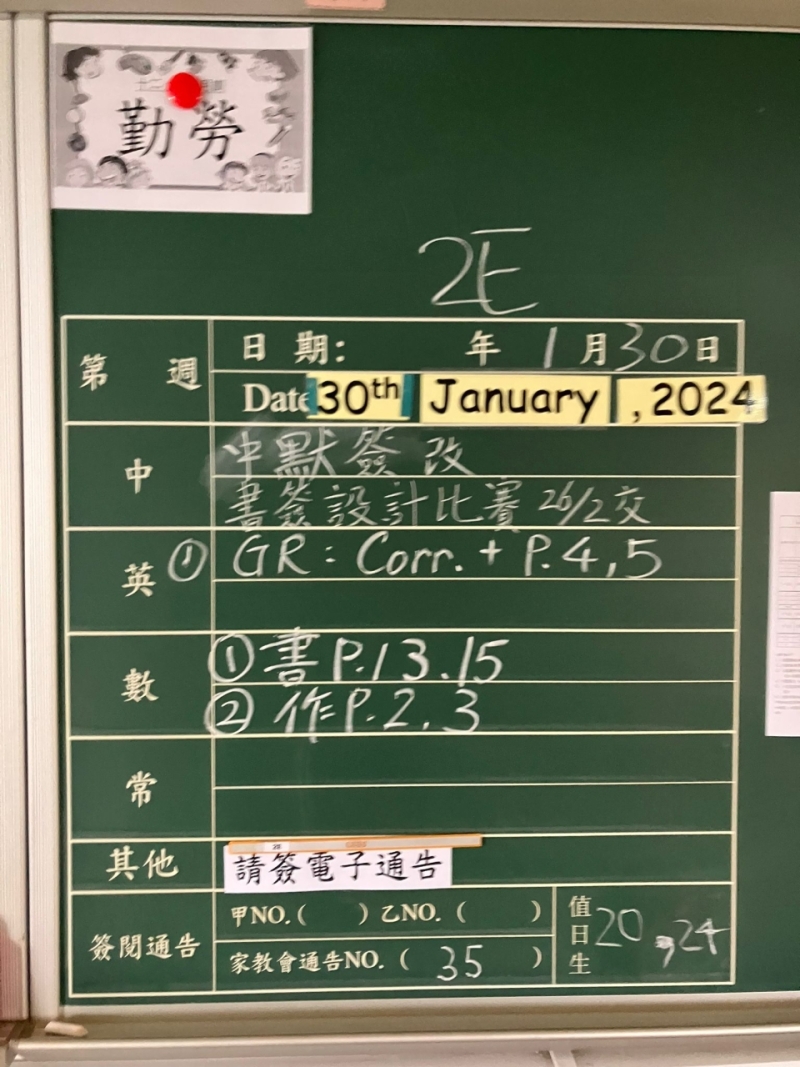 勤勞
2E
第 週
日 期: 年 1 月 30 日
Date 30th January , 2024
中
中默簽改
書簽設計比賽 26/2交
英
① GR: Corr. + P.4,5
數
① 書 P.13.15
② 作 P.2.3
常
其他
請簽電子通告
簽閱通告
甲NO.( ) 乙NO. ( )
家教會通告NO. ( 35 )
值日生 20, 24